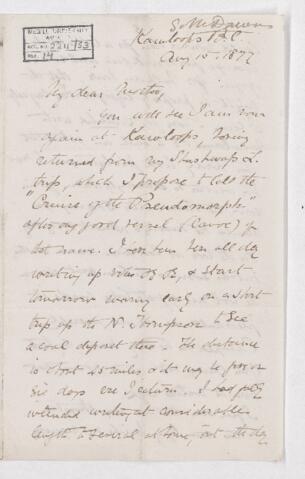 Kamloops B.C.
Aug 15. 1877
My dear
You will see I am now
again at Kamloops, having
returned from my Shushwap L.
trip, which I prepare to call the
"Cruise of the Pseudomorph"
after my good vessel (canoe) of
that name. I have been here all day
writing up notes & start
tomorrow morning early on a short
trip up the N. Thompson to see
a coal deposit there. The distance
is about 45 miles & it may be five or
six days ere I return. I had fully
intended writing at considerable
length to several at home, but the day